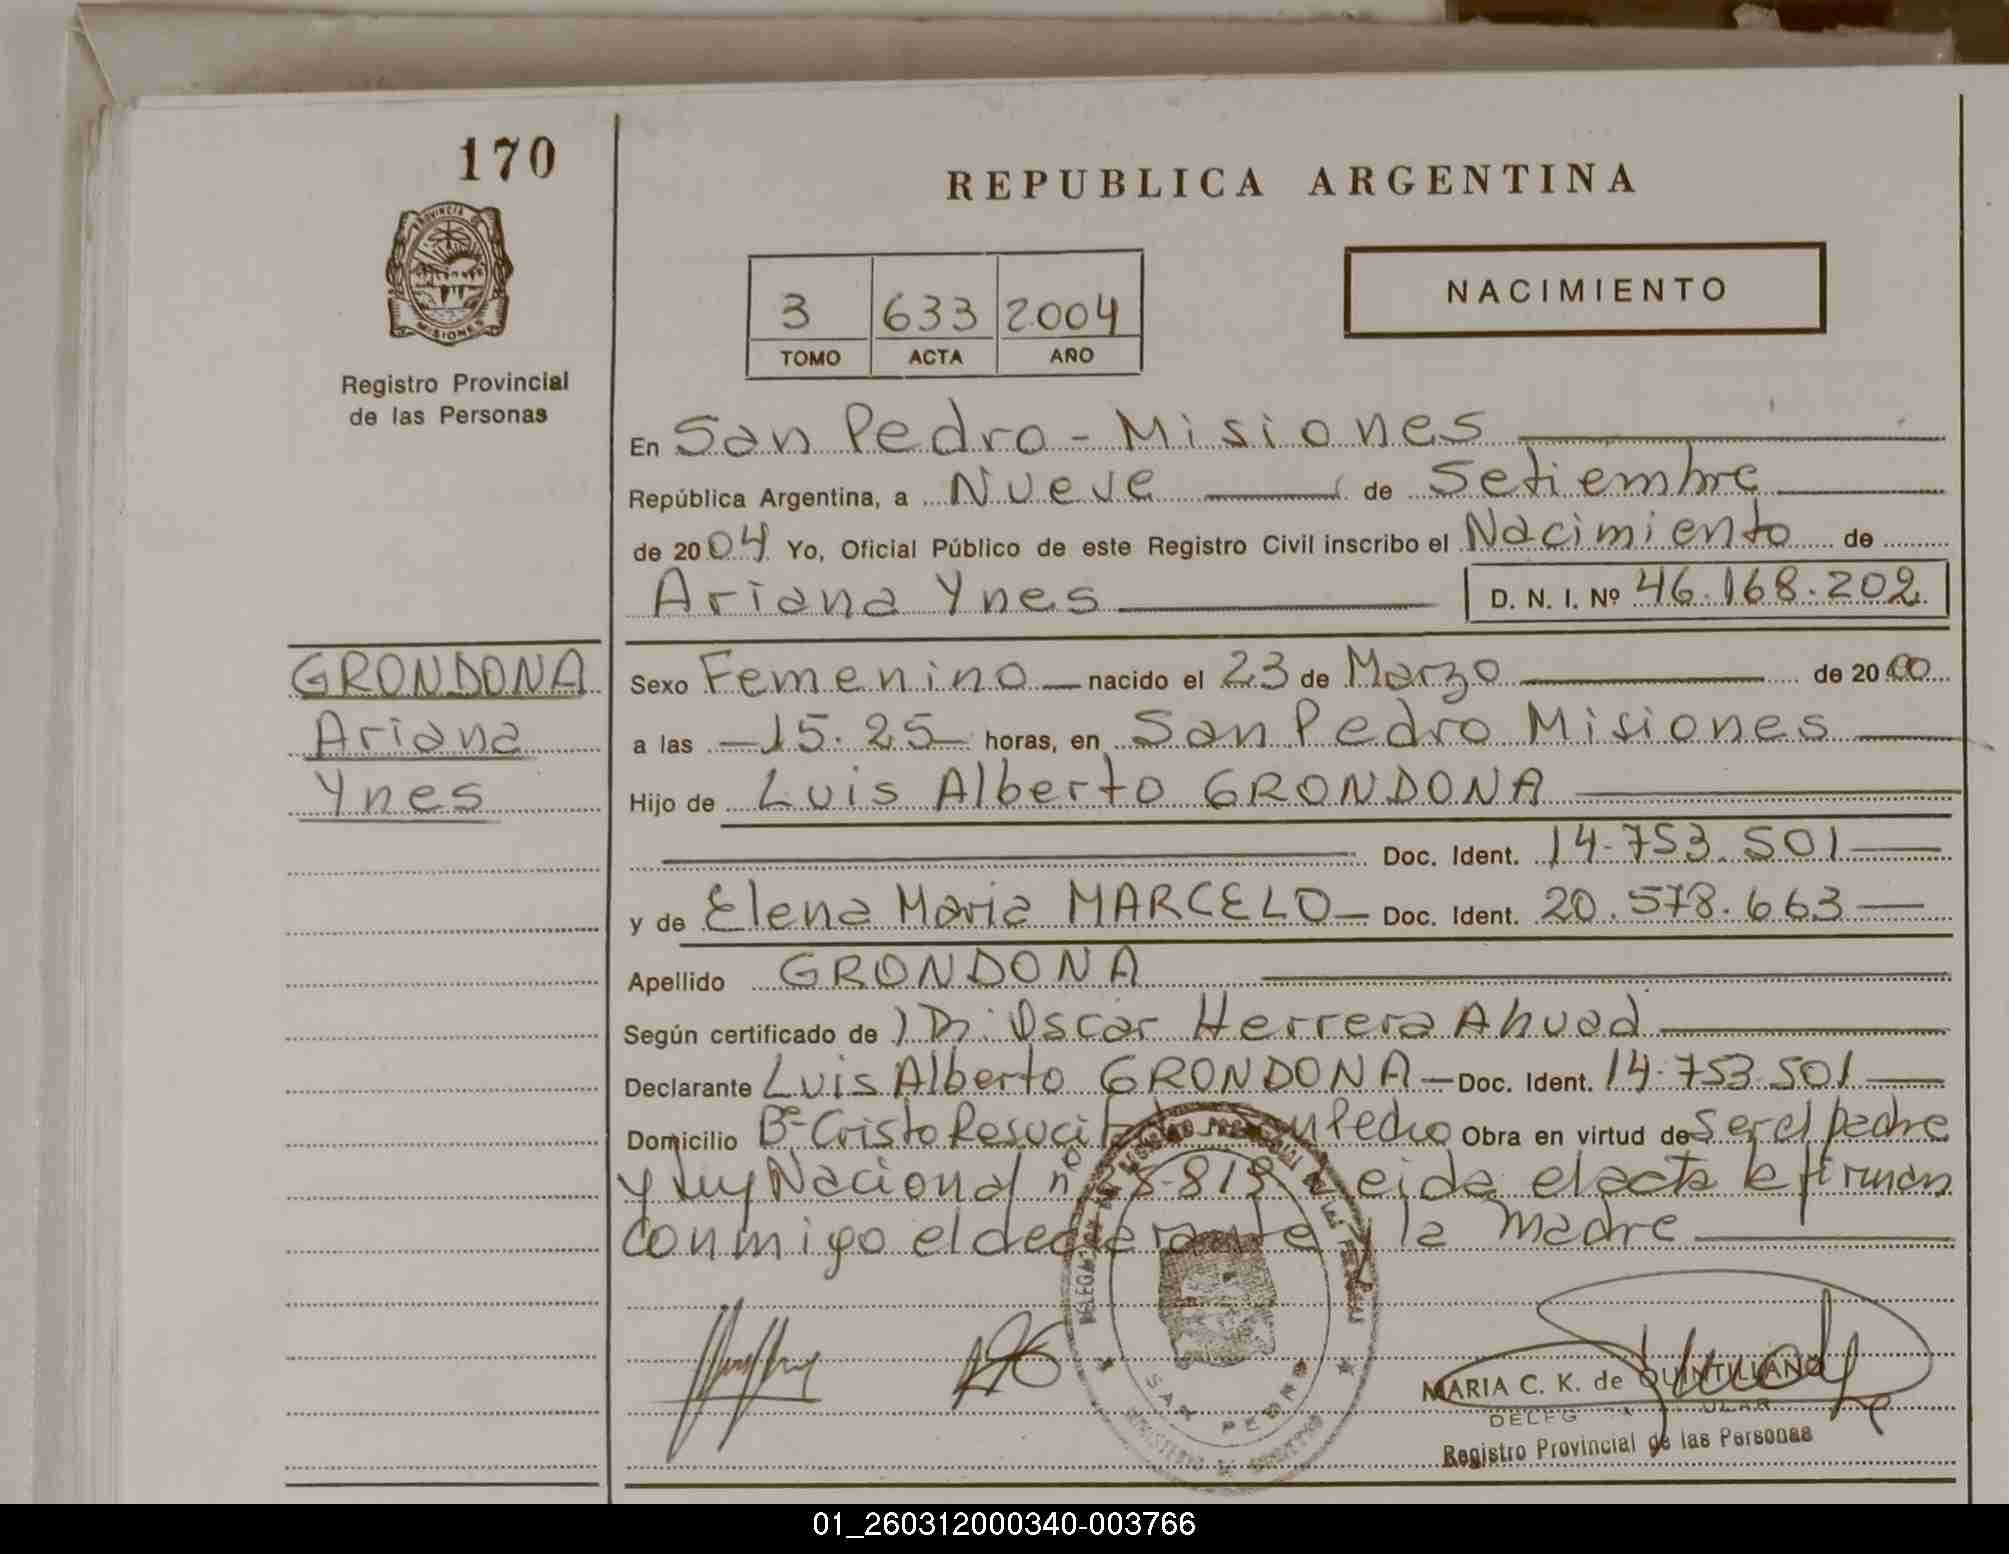 170
REPUBLICA ARGENTINA
PROVINCIA DE
MISIONES
Registro Provincial
de las Personas
3 633 2004
TOMO ACTA AÑO
NACIMIENTO
En San Pedro - Misiones
República Argentina, a Nueve de Setiembre
de 2004 Yo, Oficial Público de este Registro Civil inscribo el Nacimiento de
Ariana Ynes D. N. I. Nº 46.168.202
GRONDONA
Ariana
Ynes
Sexo Femenino nacido el 23 de Marzo de 2000
a las 15.25 horas, en San Pedro Misiones
Hijo de Luis Alberto GRONDONA
Doc. Ident. 14.753.501
y de Elena Maria MARCELO Doc. Ident. 20.578.663
Apellido GRONDONA
Según certificado de Dr. Oscar Herrera Ahuad
Declarante Luis Alberto GRONDONA Doc. Ident. 14.753.501
Domicilio Bº Cristo Pedro Obra en virtud de ser el padre
y ley Nacional nº Leida el acta la firman
conmigo el declarante y la madre
SAN PEDRO
MARIA C. K. de QUINTILLANO
Registro Provincial de las Personas
01_260312000340-003766